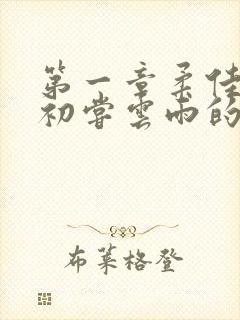 第一章柔佳
初尝雲雨的
布莱格登